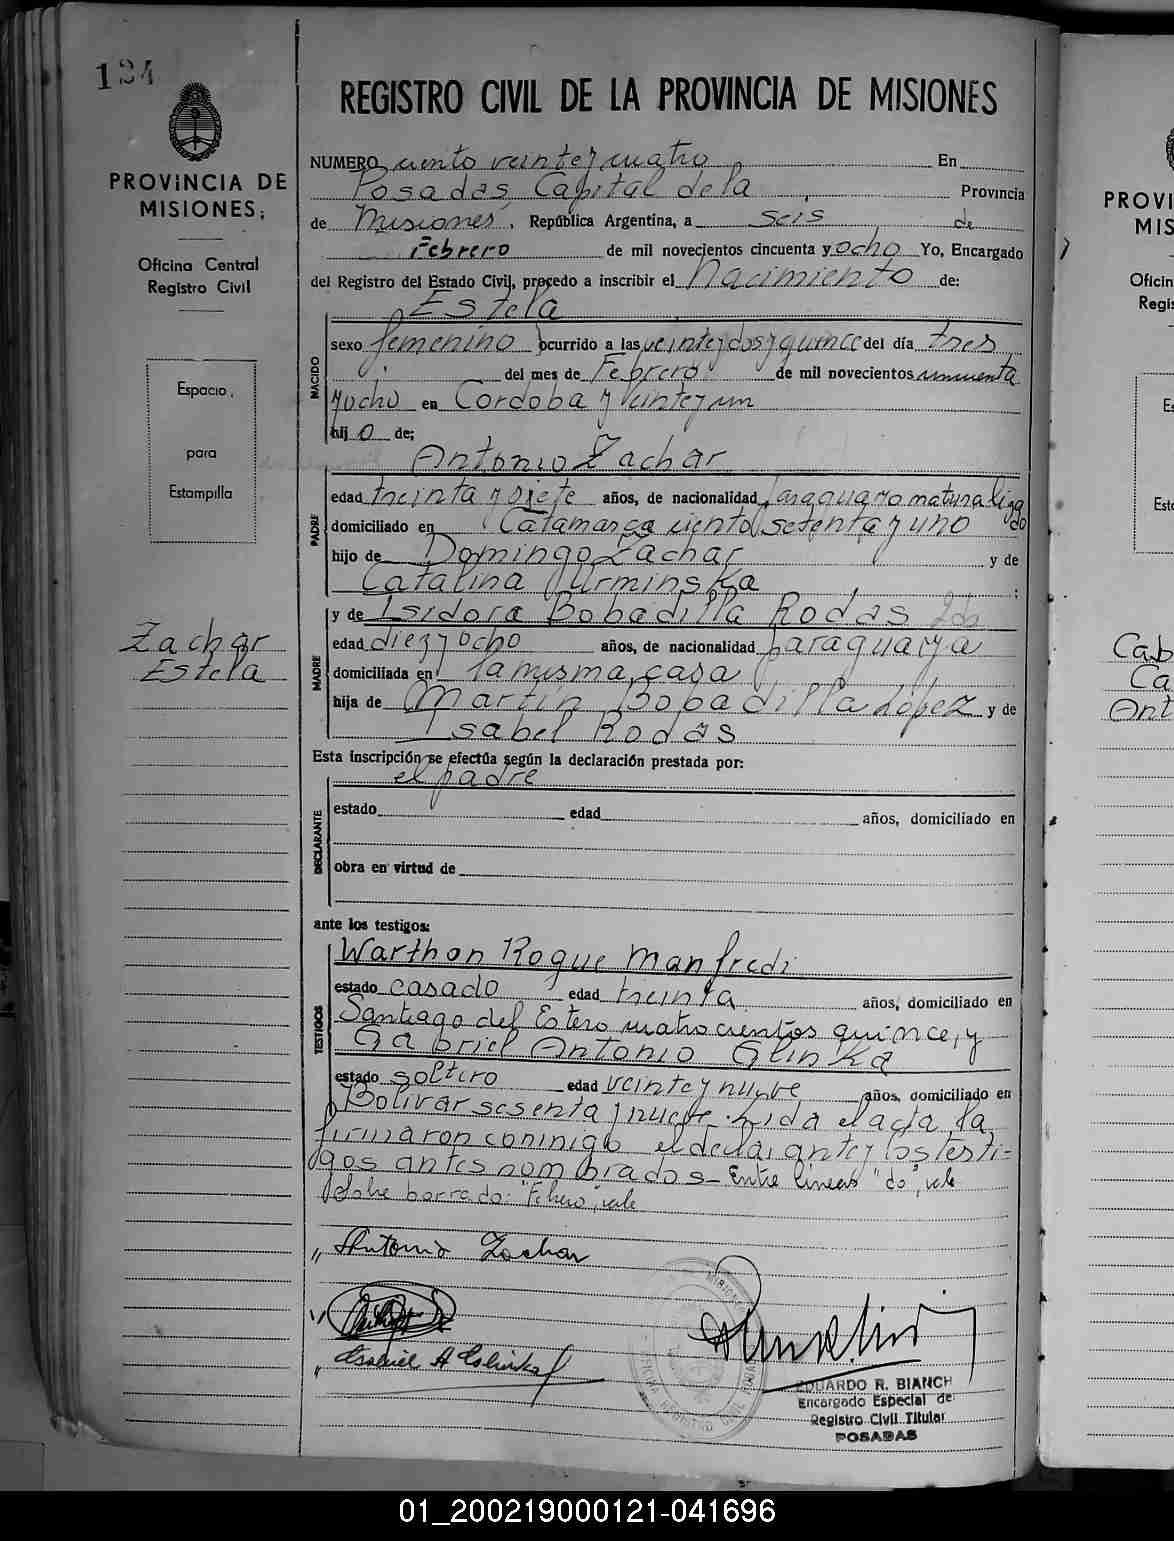 124
PROVINCIA DE
MISIONES;
Oficina Central
Registro Civil
Espacio
para
Estampilla
Zachar
Estela
REGISTRO CIVIL DE LA PROVINCIA DE MISIONES
NUMERO ciento veinte y cuatro En
Posadas Capital de la Provincia
de Misiones, República Argentina, a seis de
Febrero de mil novecientos cincuenta y ocho Yo, Encargado
del Registro del Estado Civil, procedo a inscribir el Nacimiento de:
Estela
NACIDO
sexo femenino ocurrido a las veinte y dos y quince del día tres
del mes de Febrero de mil novecientos cincuenta
y ocho en Cordoba y veinte y un
hij o de;
Antonio Zachar
PADRE
edad treinta y siete años, de nacionalidad paraguayo naturaliza
do
domiciliado en Catamarca ciento setenta y uno
hijo de Domingo Zachar y de
Catalina Urminska ;
y de Isidora Bobadilla Rodas
MADRE
edad diez y ocho años, de nacionalidad paraguaya
domiciliada en la misma casa
hija de Martín Bobadilla López y de
Isabel Rodas
Esta inscripción se efectúa según la declaración prestada por:
el padre
DECLARANTE
estado edad años, domiciliado en
obra en virtud de
ante los testigos:
Warthon Roque Manfredi
TESTIGOS
estado casado edad treinta años, domiciliado en
Santiago del Estero cuatrocientos quince, y
Gabriel Antonio Glinka
estado soltero edad veinte y nueve años, domiciliado en
Bolivar sesenta y nueve. Leida el acta la
firmaron conmigo el declarante y los testi-
gos antes nombrados- Entre lineas "do", vale
Sobre borrado: "Febrero", vale
" Antonio Zachar
EDUARDO R. BIANCHI
Encargado Especial de
Registro Civil Titular
POSADAS
PROVI
MIS
Oficin
Regis
Cab
Ca
Ant
01_200219000121-041696